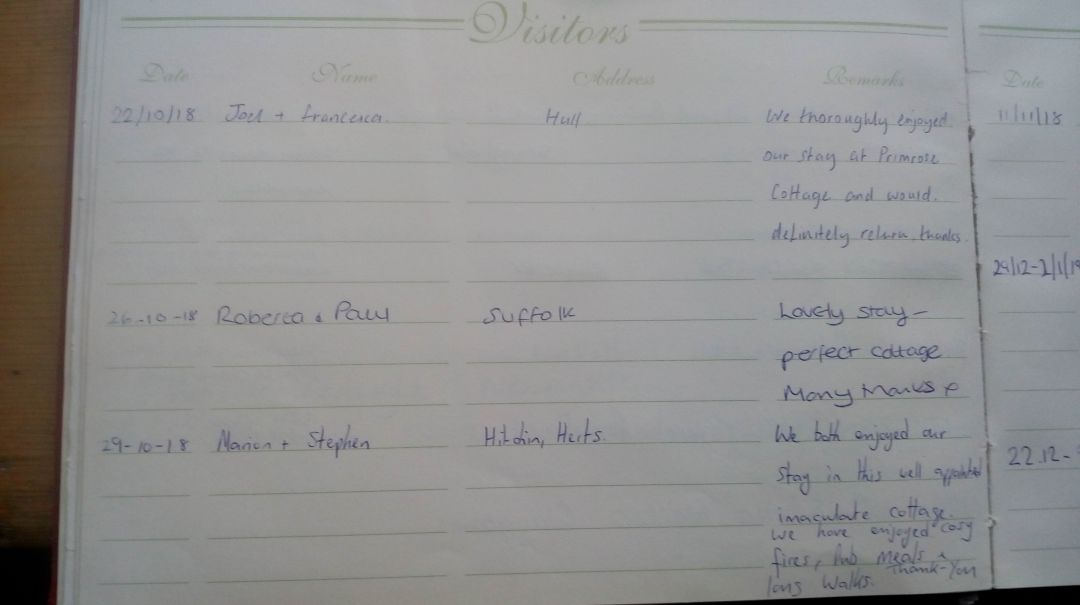 Visitors
Date Name Address Remarks
22/10/18 Joel + francesca. Hull We thoroughly enjoyed
our stay at Primrose
Cottage and would.
definitely return, thanks.
26-10-18 Roberta & Paul Suffolk Lovely stay -
perfect cottage
Many thanks x
29-10-18 Marion + Stephen Hitchin, Herts. We both enjoyed our
stay in this well appointed
imaculate cottage.
We have enjoyed cosy
fires, Pub meals &
long walks. Thank-You
Date
11/11/18
29/12-2/1/19
22.12-